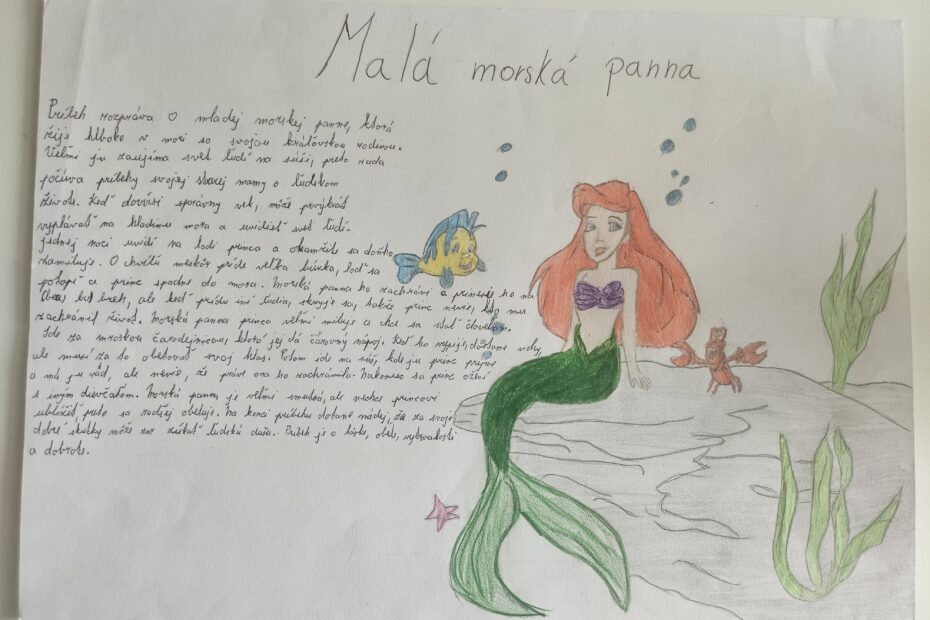 Malá morská panna
Príbeh rozpráva o mladej morskej panne, ktorá
žije hlboko v mori so svojou kráľovskou rodinou.
Veľmi ju zaujíma svet ľudí na súši, preto rada
počúva príbehy svojej starej mamy o ľudskom
živote. Keď dovŕši správny vek, môže prvýkrát
vyplávať na hladinu mora a uvidieť svet ľudí.
Jednej noci uvidí na lodi princa a okamžite sa doňho
zamiluje. O chvíľu neskôr príde veľká búrka, loď sa
potopí a princ spadne do mora. Morská panna ho zachráni a prinesie ho na
breh, ale keď prídu iní ľudia, skryje sa, takže princ nevie, kto mu
zachránil život. Morská panna princa veľmi miluje a chce sa stať človekom.
Ide za morskou čarodejnicou, ktorá jej dá čarovný nápoj. Keď ho vypije, dostane nohy,
ale musí za to obetovať svoj hlas. Potom ide na súš, kde ju princ prijme
a má ju rád, ale nevie, že práve ona ho zachránila. Nakoniec sa princ ožení
s iným dievčaťom. Morská panna je veľmi smutná, ale nechce princovi
ublížiť, preto sa radšej obetuje. Na konci príbehu dostane nádej, že za svoje
dobré skutky môže raz získať ľudskú dušu. Príbeh je o láske, obete, vytrvalosti
a dobrote.